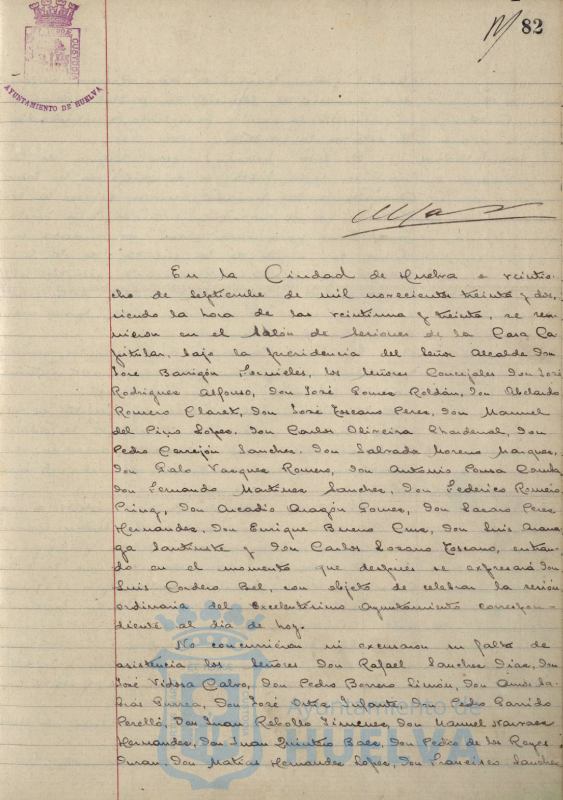 82
AYUNTAMIENTO DE HUELVA
En la Ciudad de Huelva a veintio-
cho de septiembre de mil novecientos treinta y dos,
siendo la hora de las veintiuna y treinta, se reu-
nieron en el Salón de Sesiones de la Casa Ca-
pitular, bajo la presidencia del Señor Alcalde Don
José Barrigón Fornieles, los Señores Concejales Don José
Rodriguez Alfonso, Don José Gomez Roldán, Don Abelardo
Romero Claret, Don José Toscano Perez, Don Manuel
del Pino Lopez, Don Carlos Oliveira Chardenal, Don
Pedro Cerrejón Sanchez, Don Salvador Moreno Marquez,
Don Galo Vazquez Romero, Don Antonio Ponsa
Don Fernando Martinez Sanchez, Don Federico Romero
Don Arcadio Aragón Gomez, Don Lazaro Perez
Hernandez, Don Enrique Bueno Cruz, Don Luis
y Don Carlos Lozano Toscano, entran-
do en el momento que despues se expresará Don
Luis Cordero Bel, con objeto de celebrar la sesión
ordinaria del Excelentísimo Ayuntamiento correspon-
diente al dia de hoy.
No concurrieron ni excusaron su falta de
asistencia los Señores Don Rafael Sanchez Diaz, Don
José Vidosa Calvo, Don Pedro Borrero Limón, Don Amos Sa-
Don José Ortiz Infante, Don Pedro Garrido
Perelló, Don Juan Rebollo Jimenez, Don Manuel Narvaez
Hernandez, Don Juan Quintero Baez, Don Pedro de los Reyes
Duran, Don Matías Hernandez Lopez, Don Francisco Sanchez
Ayuntamiento de
HUELVA